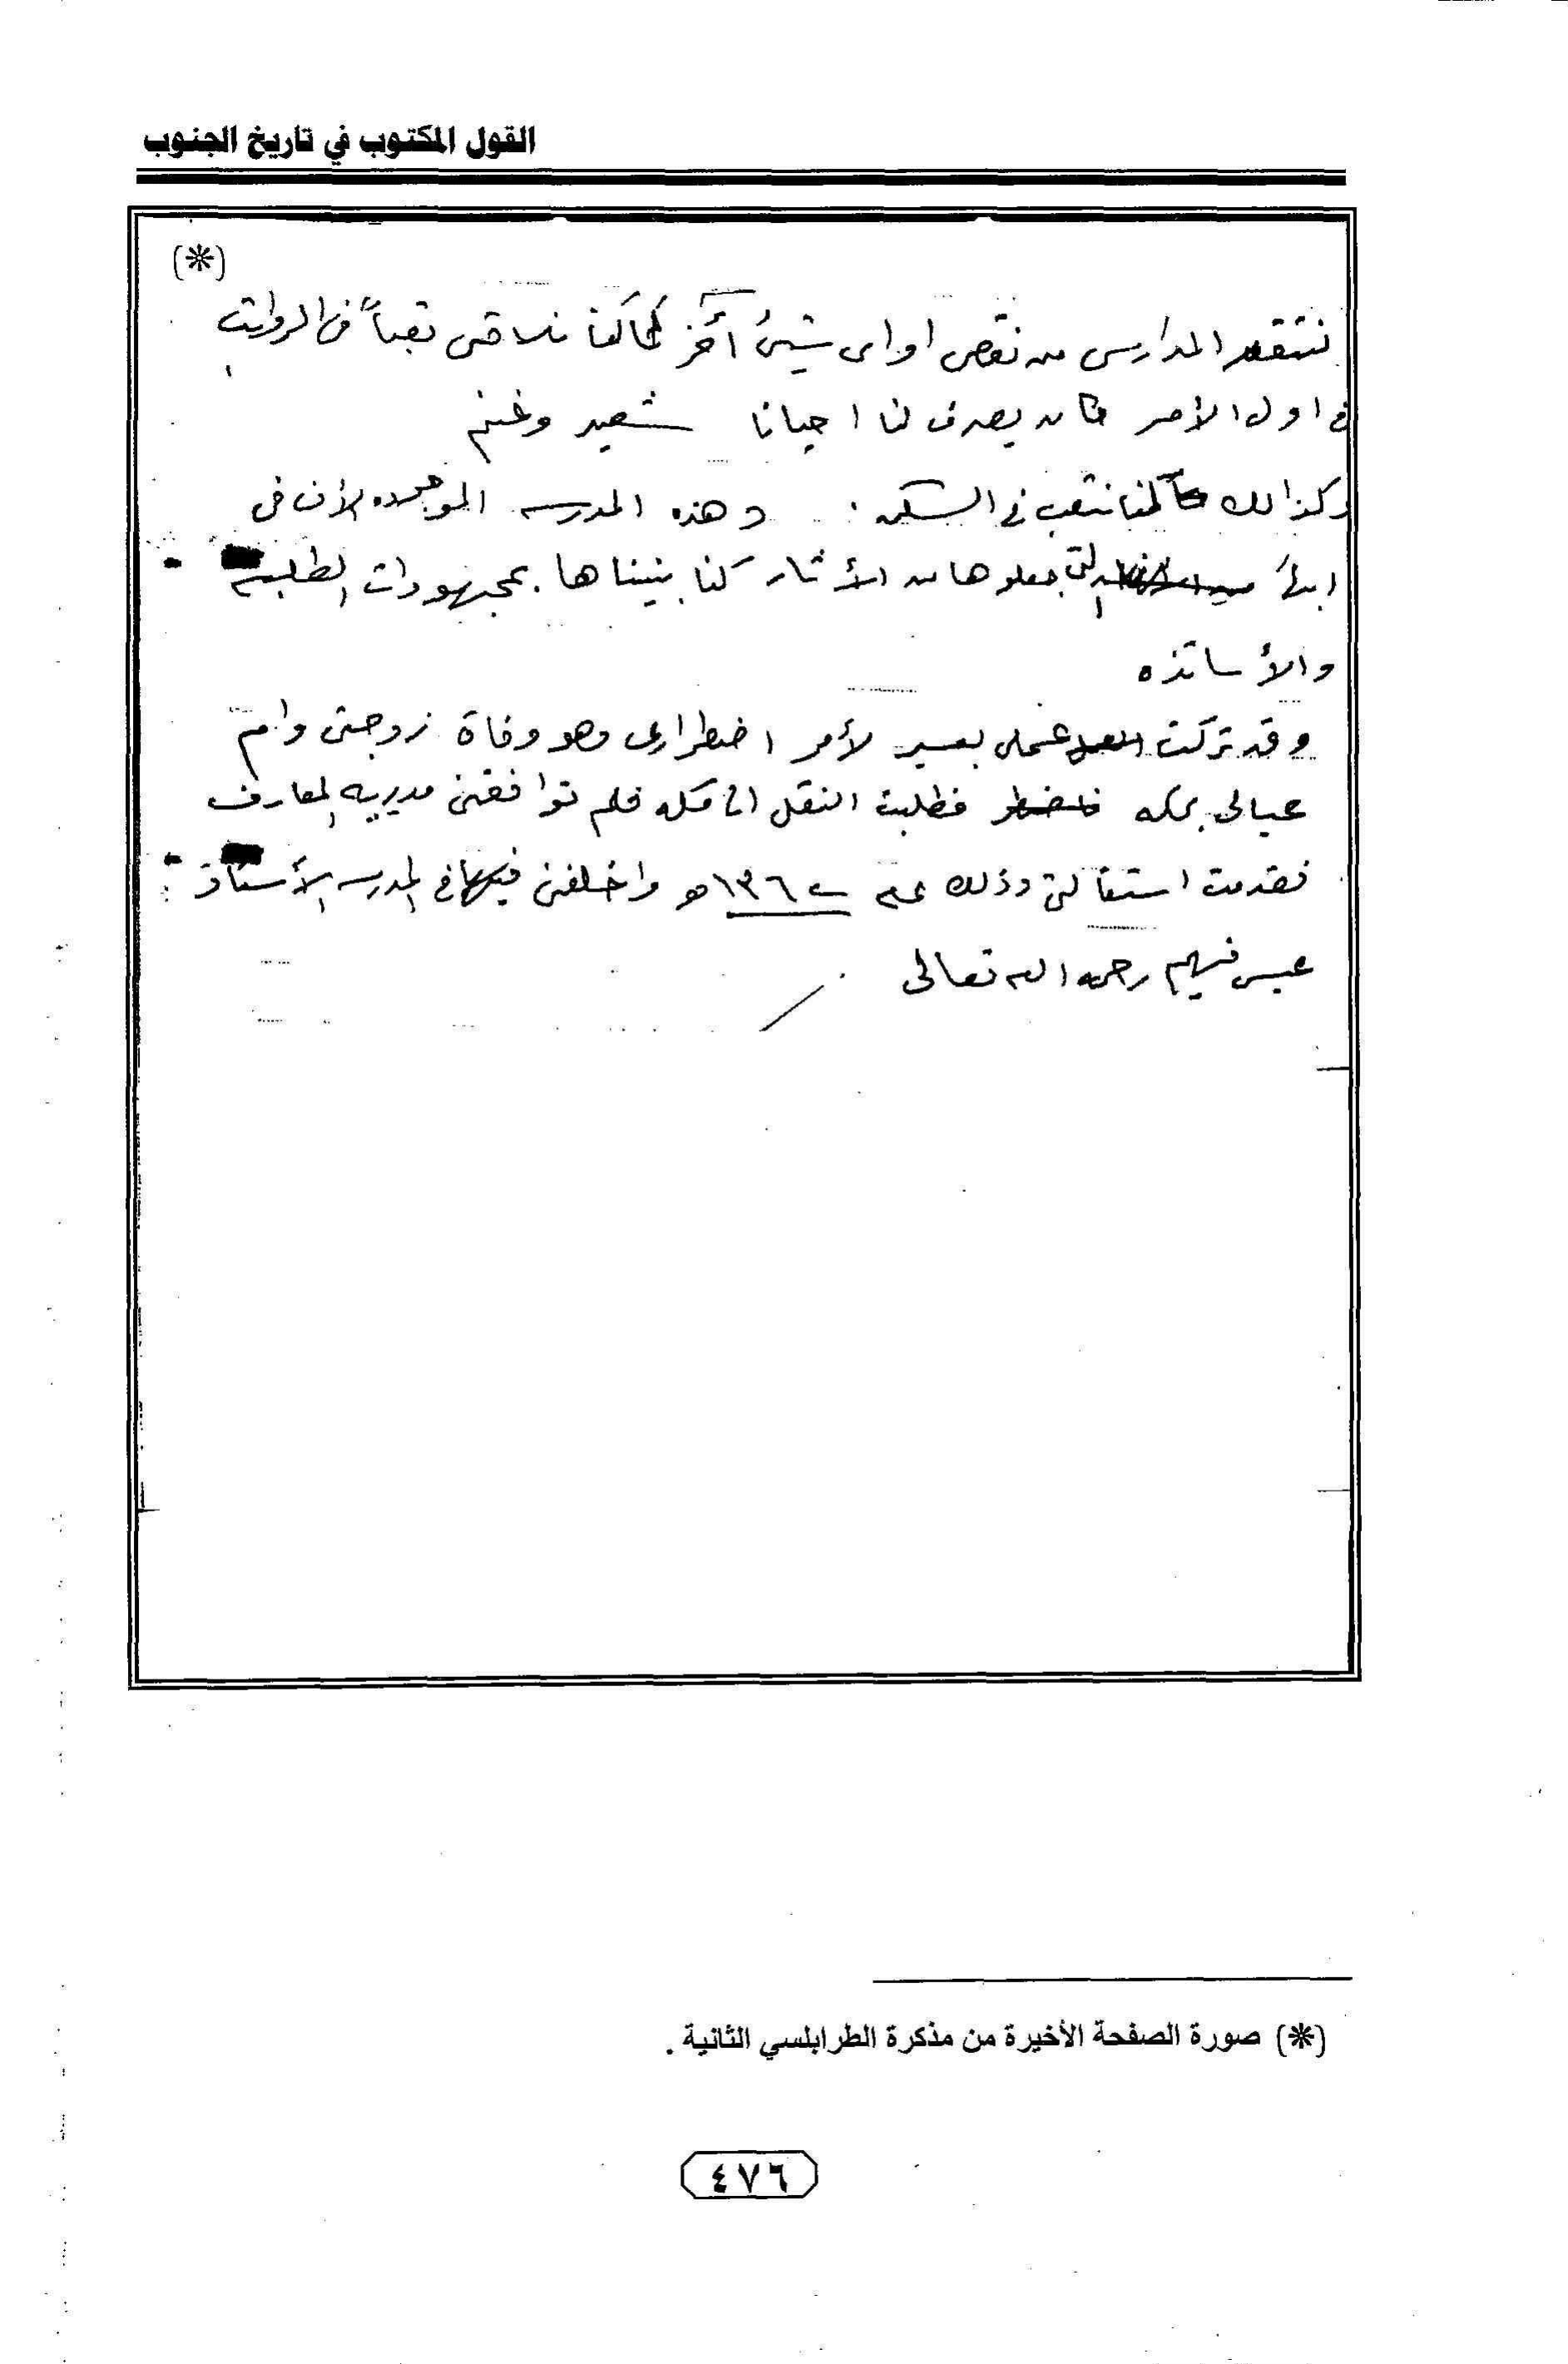 القول المكتوب في تاريخ الجنوب
(*)
المدارس من نقص او اى شيئ آخر كما كنا نلاقى تعباً فى الرواتب
فى اول الأمر كان يصرف لنا احيانا شعير وغنم
وكذالك كنا نتعب فى السكن . وهذه المدرسه الموجوده الأن فى
ابها التى جعلوها من الأثار كنا بنيناها بمجهودات الطلبه
والأساتذه
وقد تركت عملى بعسير لأمر اضطرارى وهو وفاة زوجتى وام
عيالى بمكه فطلبت النقل الى مكه فلم توافقنى مديرية المعارف
فقدمت استقالتى وذلك عام هـ واخلفنى فيها فى المدرسه الأستاذ
فهيم رحمه الله تعالى
(*) صورة الصفحة الأخيرة من مذكرة الطرابلسي الثانية .
٤٧٦